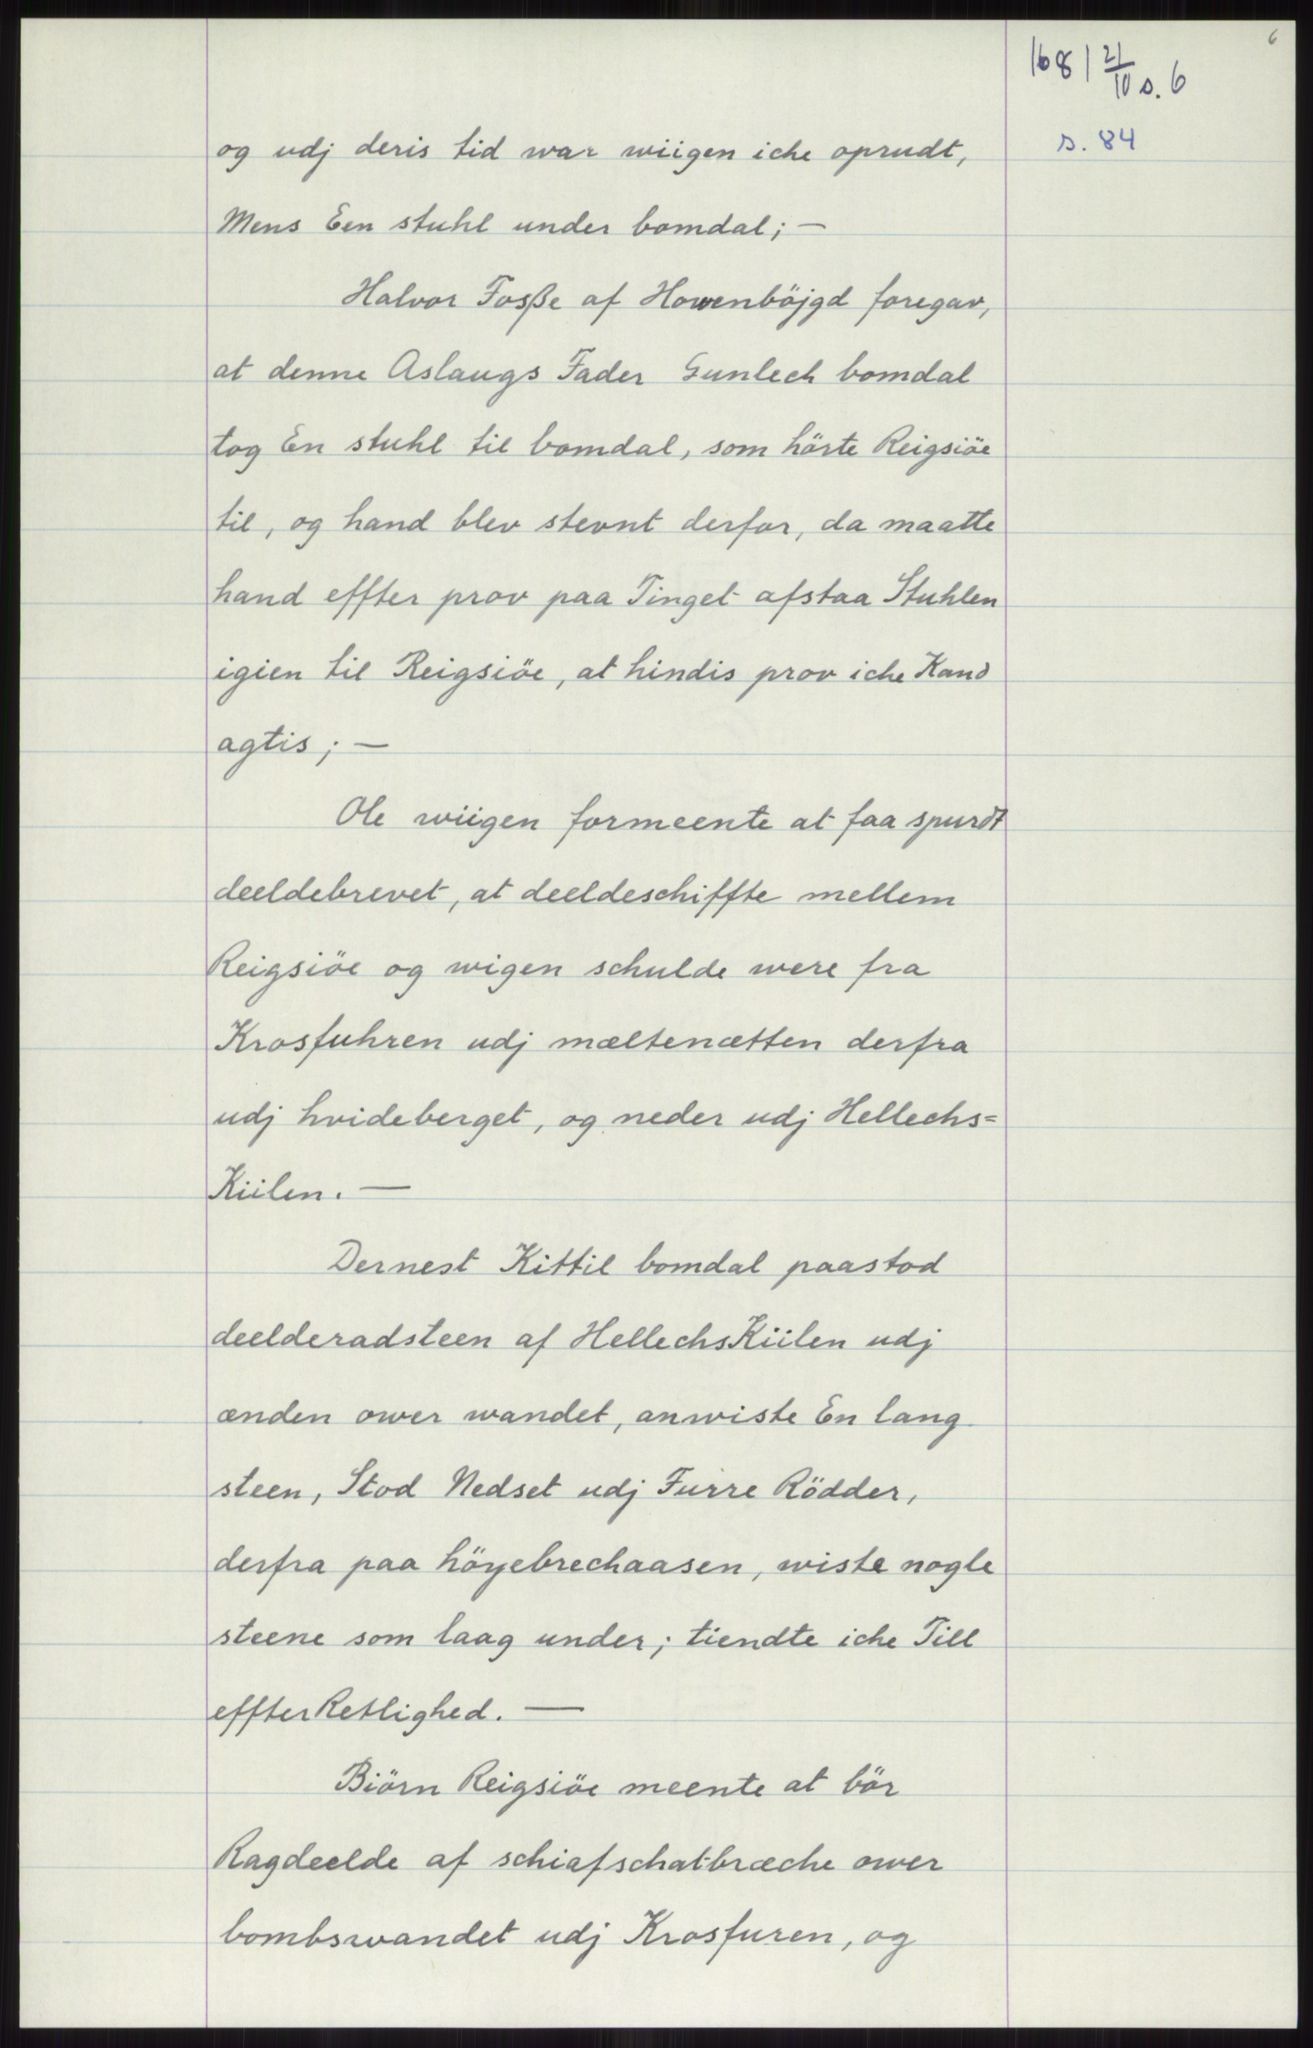 6
1681 21/10 s. 6
s. 84
og udj deris tid war wiigen iche oprudt,
Mens Een stuhl under bomdal; —
Halvor Fosße af Howenböjgd foregav,
at denne Aslaugs Fader Gunlech bomdal
tog En stuhl til bomdal, som hörte Reigsiöe
til, og hand blev stevnt derfor, da maatte
hand effter prov paa Tinget afstaa Stuhlen
igien til Reigsiöe, at hindis prov iche Kand
agtis; —
Ole wiigen formeente at faa spurdt
deeldebrevet, at deeldeschiffte mellem
Reigsiöe og wigen schulde were fra
Krosfuhren udj mæltenætten derfra
udj hvideberget, og neder udj Hellechs=
Kiilen. —
Dernest Kittil bomdal paastod
deelderadsteen af HellechsKiilen udj
ænden ower wandet, anwiste En lang
steen, Stod Nedset udj Furre Rödder,
derfra paa höyebrechaasen, wiste nogle
steene som laag under; tiendte iche Till
effterRetlighed. —
Biörn Reigsiöe meente at bör
Ragdeelde af schiafschatbræche ower
bombswandet udj Krosfuren, og